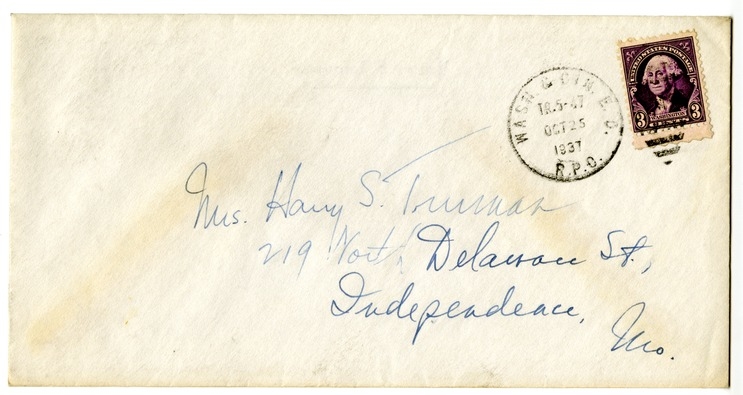 UNITED STATES POSTAGE
WASHINGTON
3 CENTS 3
WASH. & CIN. E. D.
TR.5-47
OCT 25
1937
R.P.O.
Mrs. Harry S. Truman
219 North Delaware St.,
Independence,
Mo.